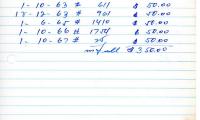 1- 10- 63 # 611 $ 50.00
12- 63 # 901 $ 50.00
1- 6- 65 # 1410 $ 50.00
1- 10- 66 # $ 50.00
1- 10- 67 # $ 50.00
$ 350.00